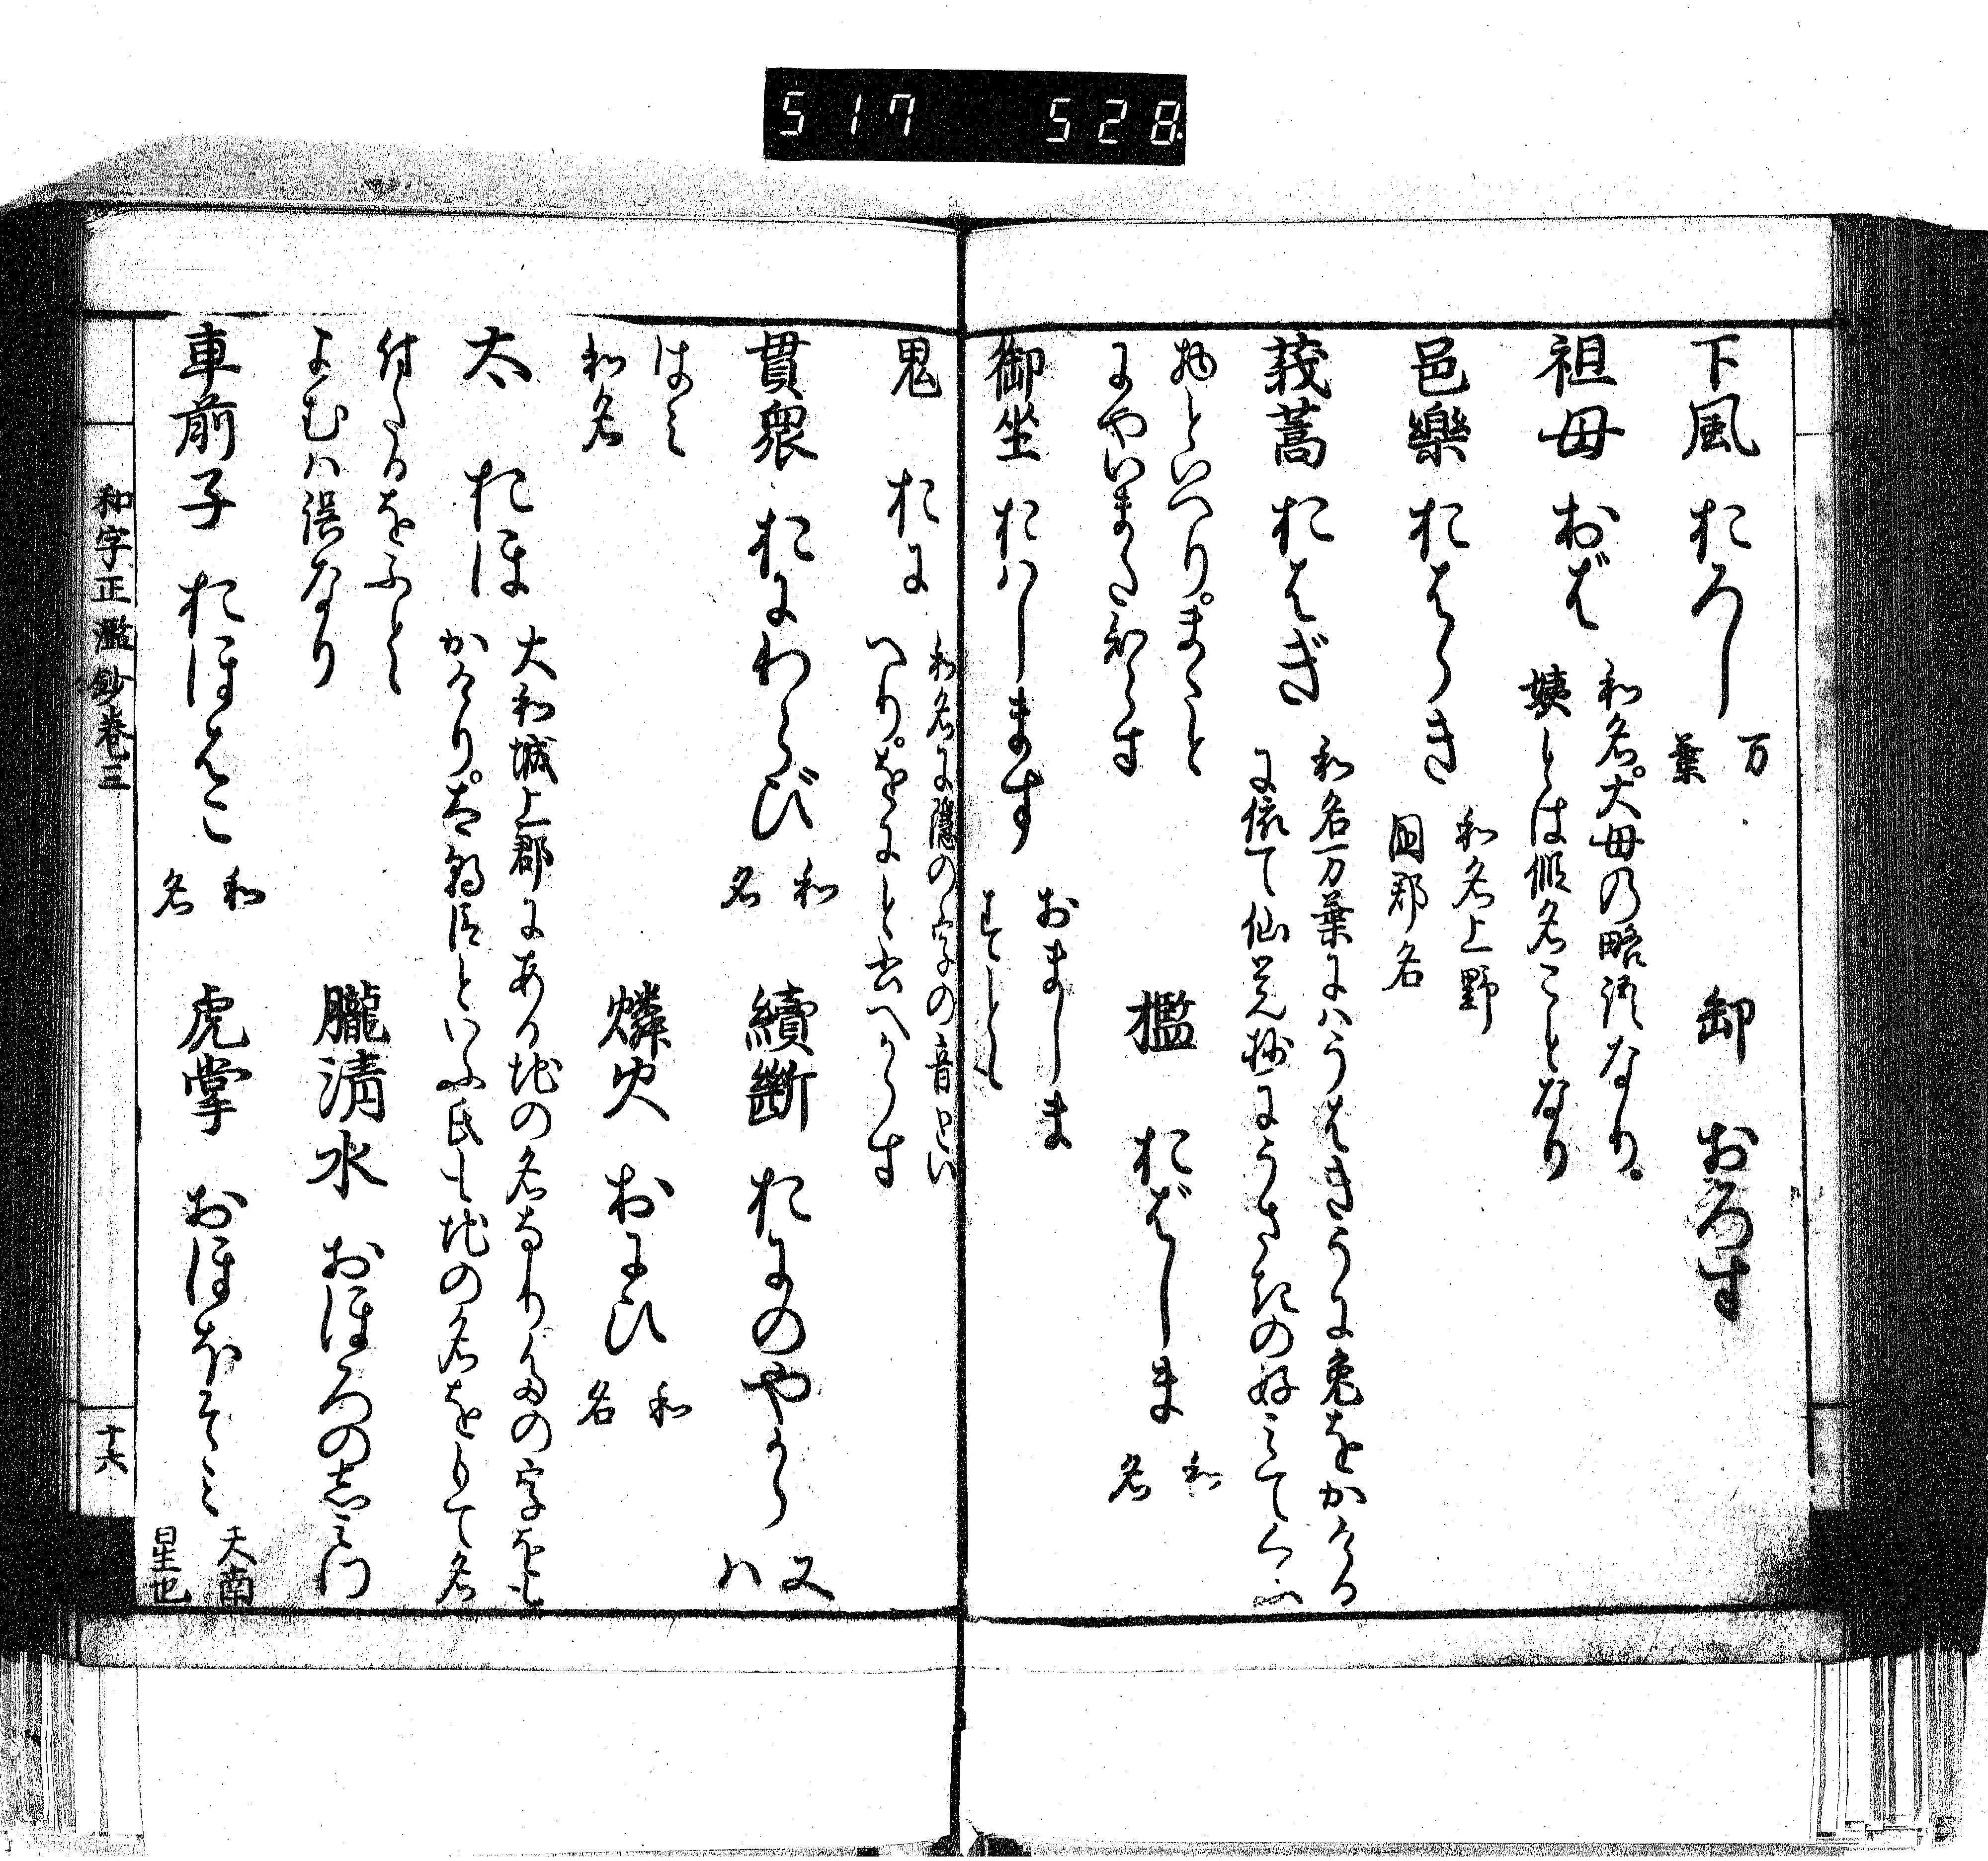 517 528
下風 おろし 万葉
卸 おろす
祖母 おば 和名。大母の略語なり。
姨とは仮名ことなり
邑樂 おはらき 和名上野
国郡名
莪蒿 おはぎ 和名万葉にハうはきうに兎をかける
に依て仙覚抄にうさきの好みてくふ
物といへり。まことと
にやいまた知らす
檻 おばしま 和名
御坐 おハします おましま
すとも
鬼 おに 和名に隠の字の音といへり。をにと書へからす
貫衆 おにわらび 和名
續斷 おにのやから 又ハ
はみ
和名
燐火 おにひ 和名
太 おほ 大和城上郡にある地の名なり多の字をも
かけり。太朝臣といふ氏も地の名をもて名
付たるをふとと
よむハ誤なり
朧清水 おほろのしみつ
車前子 おほはこ 和名
虎掌 おほほそみ 天南星也
和字正濫鈔巻三
十六